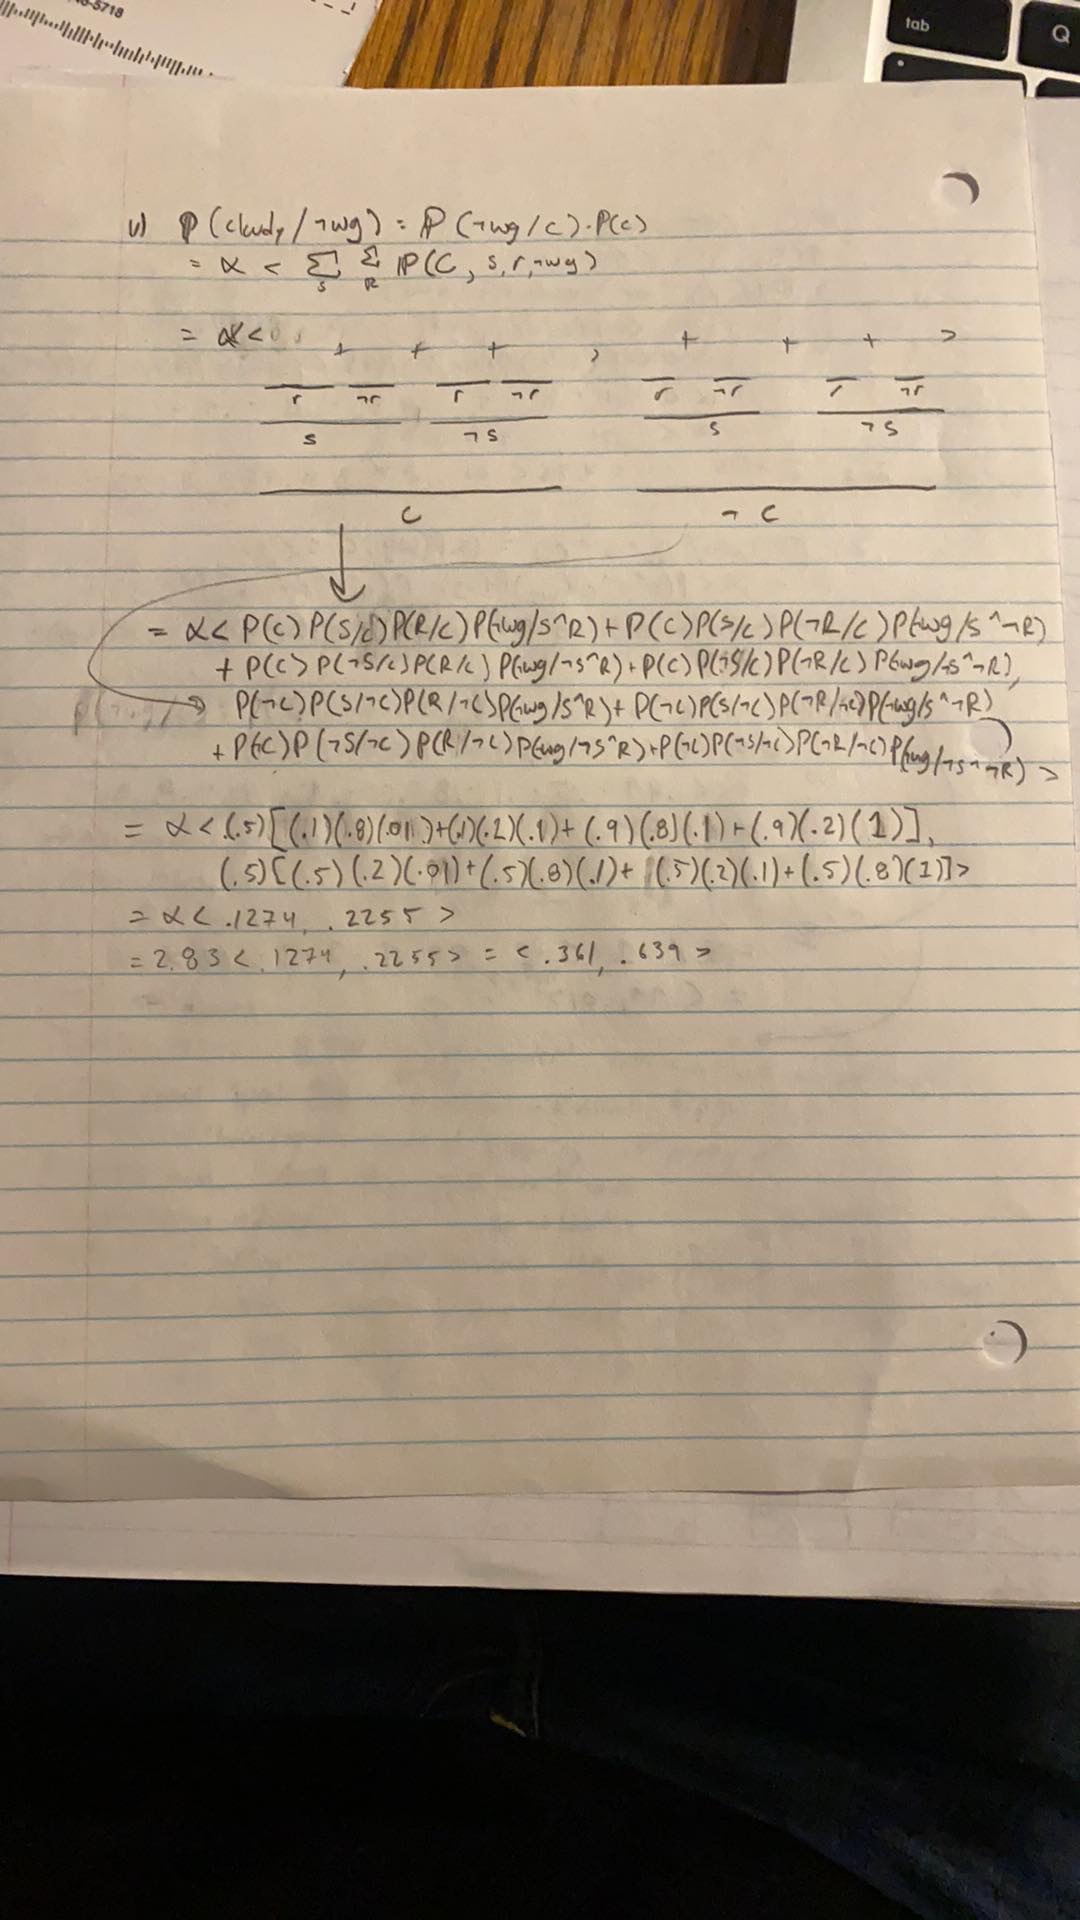 5718
tab
Q
v) P(cloudy/¬wg) = P(¬wg/c)·P(c)
= α < Σ Σ P(C, s, r, ¬wg)
s R
= α <
+ + + , + + + >
r ¬r r ¬r r ¬r r ¬r
s ¬s s ¬s
c ¬c
= α< P(c) P(s/c) P(R/c) P(¬wg/s^R) + P(c) P(s/c) P(¬R/c) P(¬wg/s^¬R)
+ P(c) P(¬s/c) P(R/c) P(¬wg/¬s^R) + P(c) P(¬s/c) P(¬R/c) P(¬wg/¬s^¬R),
P(¬c) P(s/¬c) P(R/¬c) P(¬wg/s^R) + P(¬c) P(s/¬c) P(¬R/¬c) P(¬wg/s^¬R)
+ P(¬c) P(¬s/¬c) P(R/¬c) P(¬wg/¬s^R) + P(¬c) P(¬s/¬c) P(¬R/¬c) P(¬wg/¬s^¬R) >
= α < (.5)[(.1)(.8)(.01)+(.1)(.2)(.1)+(.9)(.8)(.1)+(.9)(.2)(1)],
(.5)[(.5)(.2)(.01)+(.5)(.8)(.1)+(.5)(.2)(.1)+(.5)(.8)(1)]>
= α < .1274, .2255 >
= 2.83 < .1274, .2255 > = < .361, .639 >